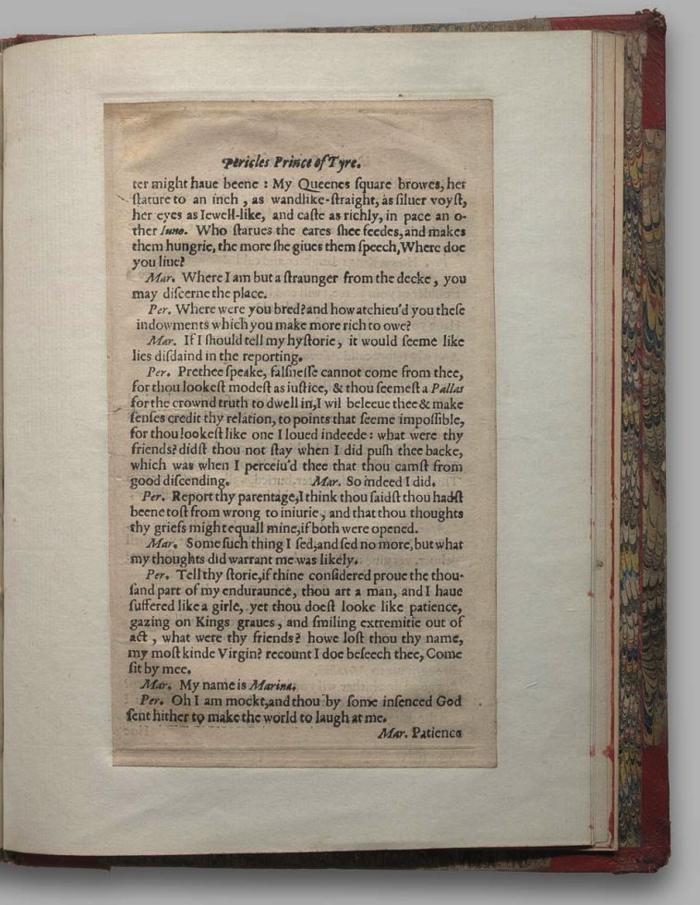 Pericles Prince of Tyre.
ter might haue beene : My Queenes ſquare browes, her
ſtature to an inch , as wandlike-ſtraight, as ſiluer voyſt,
her eyes as Iewell-like, and caſte as richly, in pace an o-
ther Iuno. Who ſtarues the eares ſhee feedes, and makes
them hungrie, the more ſhe giues them ſpeech, Where doe
you liue?
Mar. Where I am but a ſtraunger from the decke , you
may diſcerne the place.
Per. Where were you bred? and how atchieu'd you theſe
indowments which you make more rich to owe?
Mar. If I ſhould tell my hyſtorie, it would ſeeme like
lies diſdaind in the reporting.
Per. Prethee ſpeake, falſneſſe cannot come from thee,
for thou lookeſt modeſt as iuſtice, & thou ſeemeſt a Pallas
for the crownd truth to dwell in, I wil beleeue thee & make
ſenſes credit thy relation, to points that ſeeme impoſſible,
for thou lookeſt like one I loued indeede : what were thy
friends? didſt thou not ſtay when I did puſh thee backe,
which was when I perceiu'd thee that thou camſt from
good diſcending. Mar. So indeed I did.
Per. Report thy parentage, I think thou ſaidſt thou hadſt
beene toſt from wrong to iniurie , and that thou thoughts
thy griefs might equall mine, if both were opened.
Mar. Some ſuch thing I ſed, and ſed no more, but what
my thoughts did warrant me was likely.
Per. Tell thy ſtorie, if thine conſidered proue the thou-
ſand part of my enduraunce, thou art a man, and I haue
ſuffered like a girle, yet thou doeſt looke like patience,
gazing on Kings graues , and ſmiling extremitie out of
act , what were thy friends? howe loſt thou thy name,
my moſt kinde Virgin? recount I doe beſeech thee, Come
ſit by mee.
Mar. My name is Marina.
Per. Oh I am mockt, and thou by ſome inſenced God
ſent hither to make the world to laugh at me.
Mar. Patience